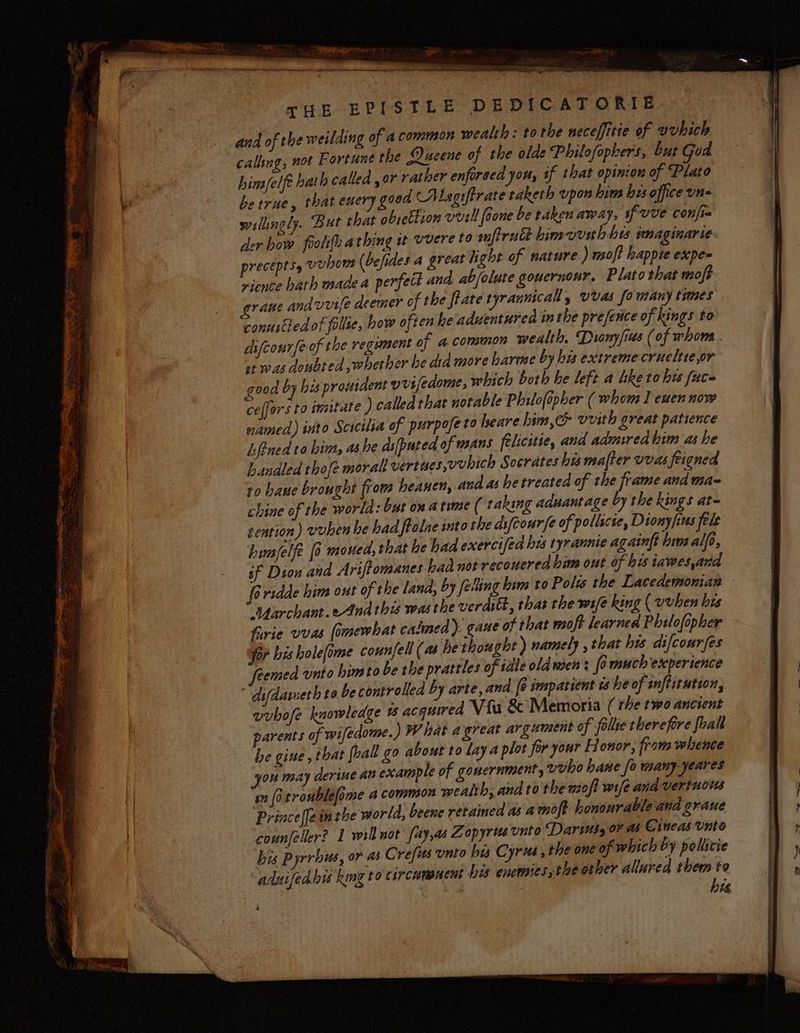 THE EPISTLE DEDICATORIE
and of the weilding of a common wealth: to the necessitie of vvhich
calling, not Fortune the Queene of the olde Philosophers, but God
himselfe hath called, or rather enforced you, if that opinion of Plato
be true, that euery good Magistrate taketh vpon him his office vn-
willingly. But that obiection vvill soone be taken away, if vve consi-
der how foolish a thing it vvere to instruct him vvith his imaginarie
precepts, vvhom (besides a great light of nature) most happie expe-
rience hath made a perfect and absolute gouernour. Plato that most
graue and vvise deemer of the state tyrannicall, vvas so many times
conuicted of follie, how often he aduentured in the presence of kings to
discourse of the regiment of a common wealth. Dionysius (of whom
it was doubted, whether he did more harme by his extreme crueltie, or
good by his prouident vvisedome, which both he left a like to his suc-
cessors to imitate) called that notable Philosopher (whom I euen now
named) into Scicilia of purpose to heare him, & vvith great patience
listned to him, as he disputed of mans felicitie, and admired him as he
handled those morall vertues, vvhich Socrates his master vvas feigned
to haue brought from heauen, and as he treated of the frame and ma-
chine of the world: but on a time (taking aduantage by the kings at-
tention) vvhen he had stolne into the discourse of pollicie, Dionysius felt
himselfe so moued, that he had exercised his tyrannie against him also,
if Dion and Aristomanes had not recouered him out of his iawes, and
so ridde him out of the land, by selling him to Polis the Lacedemonian
Marchant. And this was the verdict, that the wise king (vvhen his
furie vvas somewhat calmed) gaue of that most learned Philosopher
for his holesome counsell (as he thought) namely, that his discourses
seemed vnto him to be the prattles of idle old men: so much experience
disdaineth to be controlled by arte, and so impatient is he of institution,
vvhose knowledge is acquired Vsu & Memoria (the two ancient
parents of wisedome.) What a great argument of follie therefore shall
he giue, that shall go about to lay a plot for your Honor, from whence
you may deriue an example of gouernment, vvho haue so many yeares
in so troublesome a common wealth, and to the most wise and vertuous
Princesse in the world, beene retained as a most honourable and graue
counseller? I will not say, as Zopyrus vnto Darius, or as Cineas vnto
his Pyrrhus, or as Cresus vnto his Cyrus, the one of which by pollicie
aduised his king to circumuent his enemies, the other allured them to
his